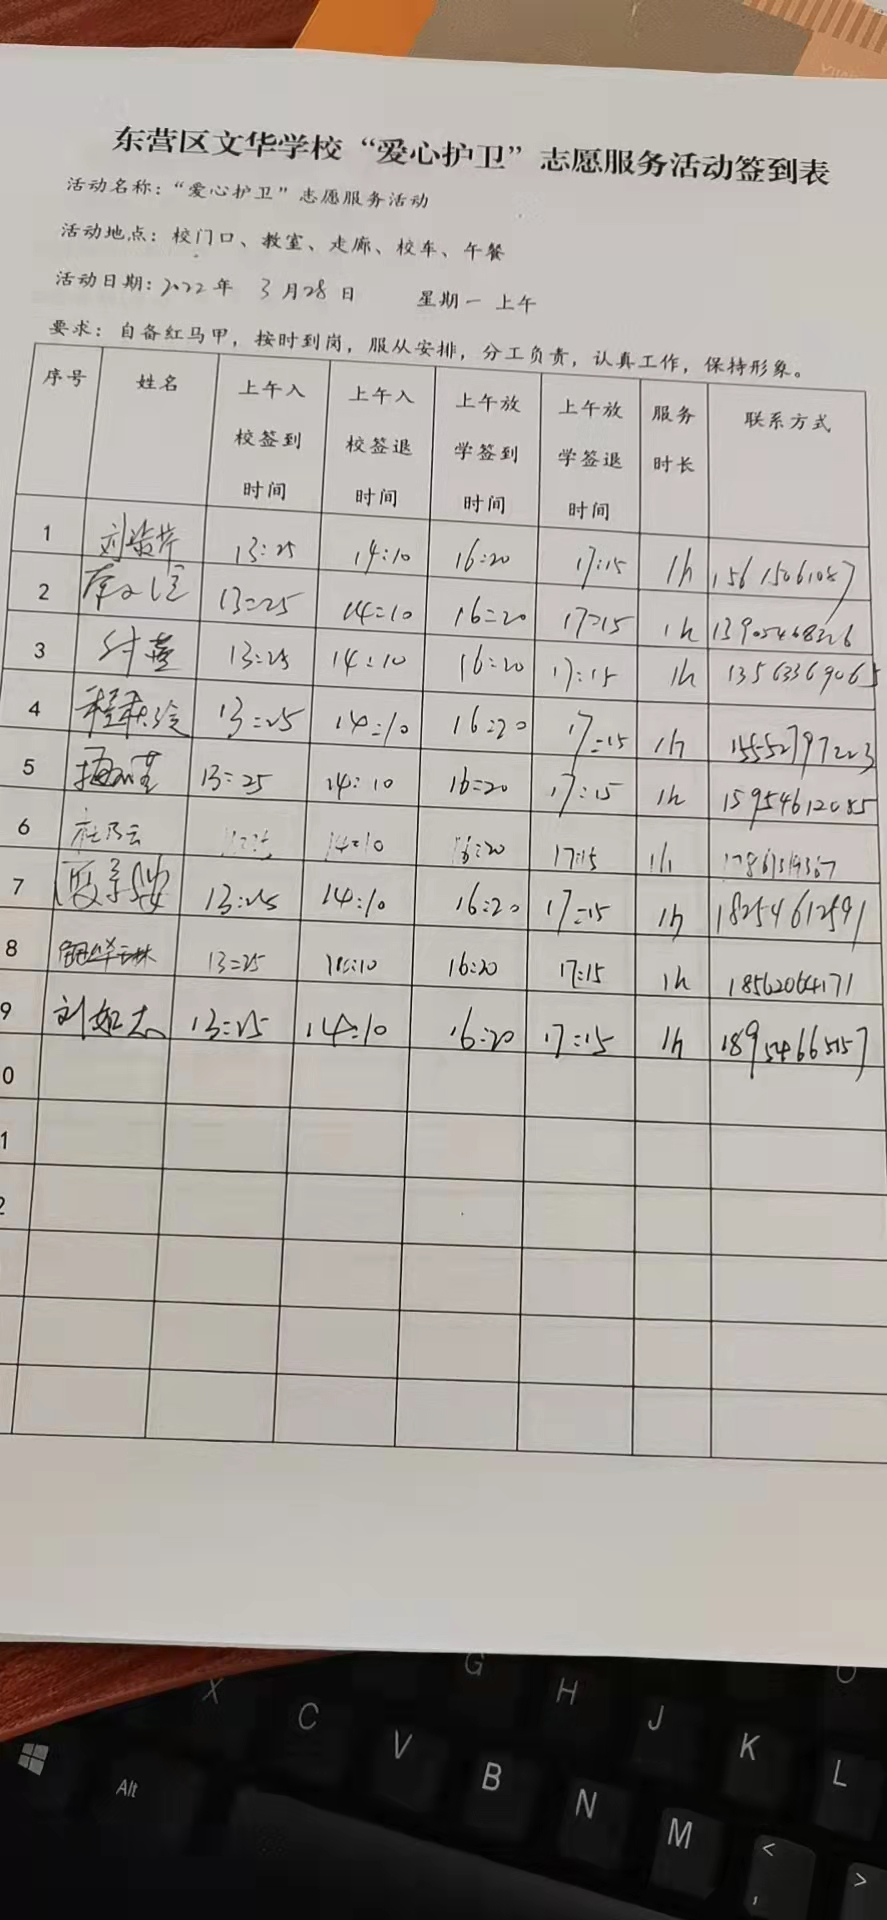 东营区文华学校“爱心护卫”志愿服务活动签到表
活动名称：“爱心护卫”志愿服务活动
活动地点：校门口、教室、走廊、校车、午餐
活动日期：2022年 3月28日 星期一 上午
要求：自备红马甲，按时到岗，服从安排，分工负责，认真工作，保持形象。
序号 姓名 上午入校签到时间 上午入校签退时间 上午放学签到时间 上午放学签退时间 服务时长 联系方式
1 13:25 14:10 16:20 17:15 1h 15615061087
2 13:25 14:10 16:20 17:15 1h 13905468226
3 13:25 14:10 16:20 17:15 1h 13563369065
4 13:25 14:10 16:20 17:15 1h 15552797223
5 13:25 14:10 16:20 17:15 1h 15954612085
6 杜乃云 14:10 16:20 17:15 1h
7 13:25 14:10 16:20 17:15 1h 18254612591
8 13:25 14:10 16:20 17:15 1h 18562064171
9 刘如杰 13:25 14:10 16:20 17:15 1h 18954665157
0
1
2
G
X C V B N M
H J K L
Alt
< ,
>